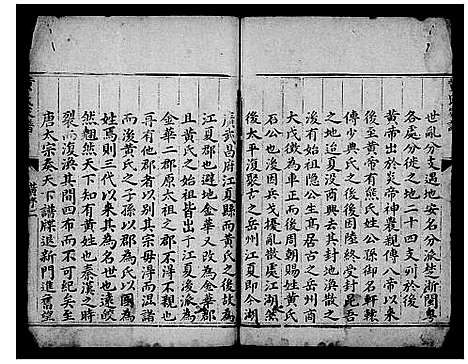 世亂分支遇地安名分派楚浙閩粵
各處分徙之地二十四支列於後
黃帝出於炎帝神農親傳八帝以來
後至黃帝有熊氏姓公孫御名軒轅
傳少典氏之後後因陸終受封昆吾
之地迨夏商興去其封地渙散之
後有始祖隱公髙居古之岳州商
大戊徵為車正而後周朝賜姓黃氏
石公也後因兵戈擾亂散處江湖
後太平復聚于之岳州江夏即今湖
廣武昌府江夏縣而黃氏之後故為
江夏郡也避地金華又改為金華郡
且黃氏之始祖皆出于江夏後派為
金華二郡原太祖之郡不浔不親也
再有他郡者以别其宗毋浔而混諸
而後黃氏之子孫以郡為氏以國為
姓焉則三代以來其為名世也遠
然翹然天下知有黃姓也秦漢之時
裂而復渙其間四布而不可紀矣至
唐太宗奏天下譜牒退新門進舊望